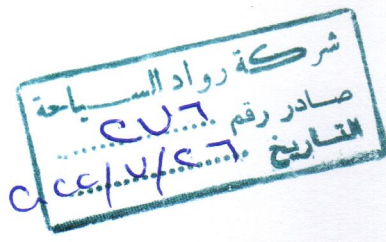 شركة رواد السياحة
صادر رقم ٢٧٦
التاريخ ٢٠٢٢/٧/٢٦